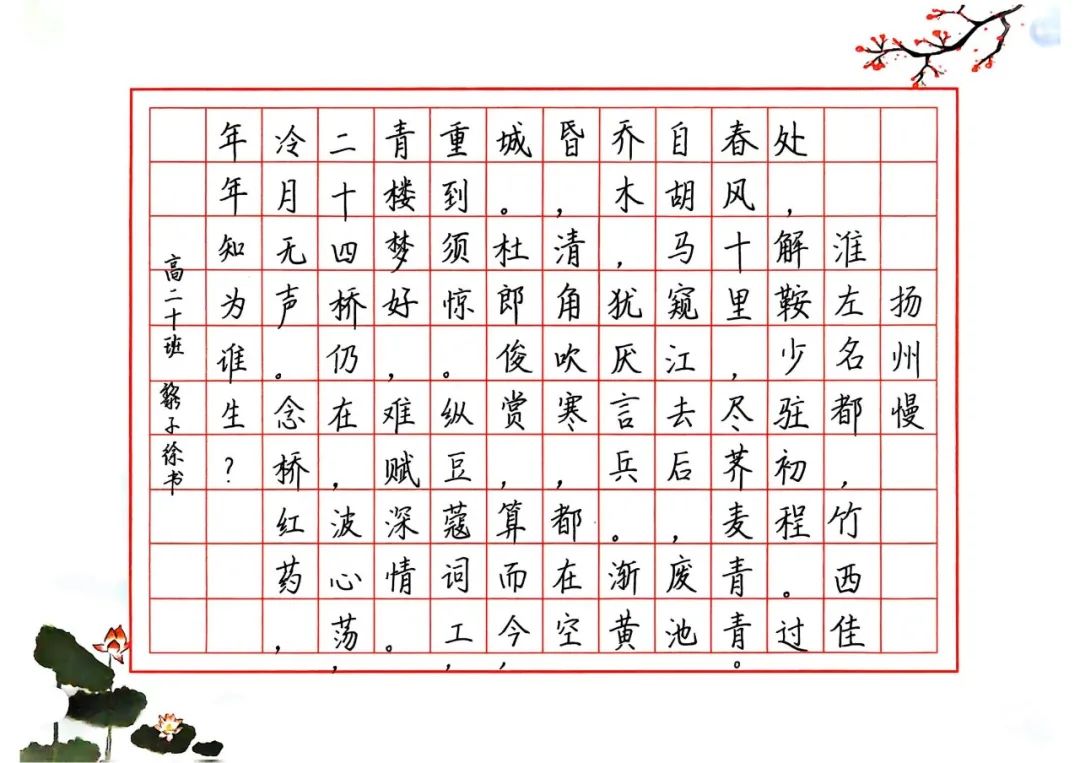 扬州慢
淮左名都，竹西佳
处，解鞍少驻初程。过
春风十里，尽荠麦青青。
自胡马窥江去后，废池
乔木，犹厌言兵。渐黄
昏，清角吹寒，都在空
城。杜郎俊赏，算而今，
重到须惊。纵豆蔻词工，
青楼梦好，难赋深情。
二十四桥仍在，波心荡，
冷月无声。念桥红药，
年年知为谁生？
高二十班 黎子徐书